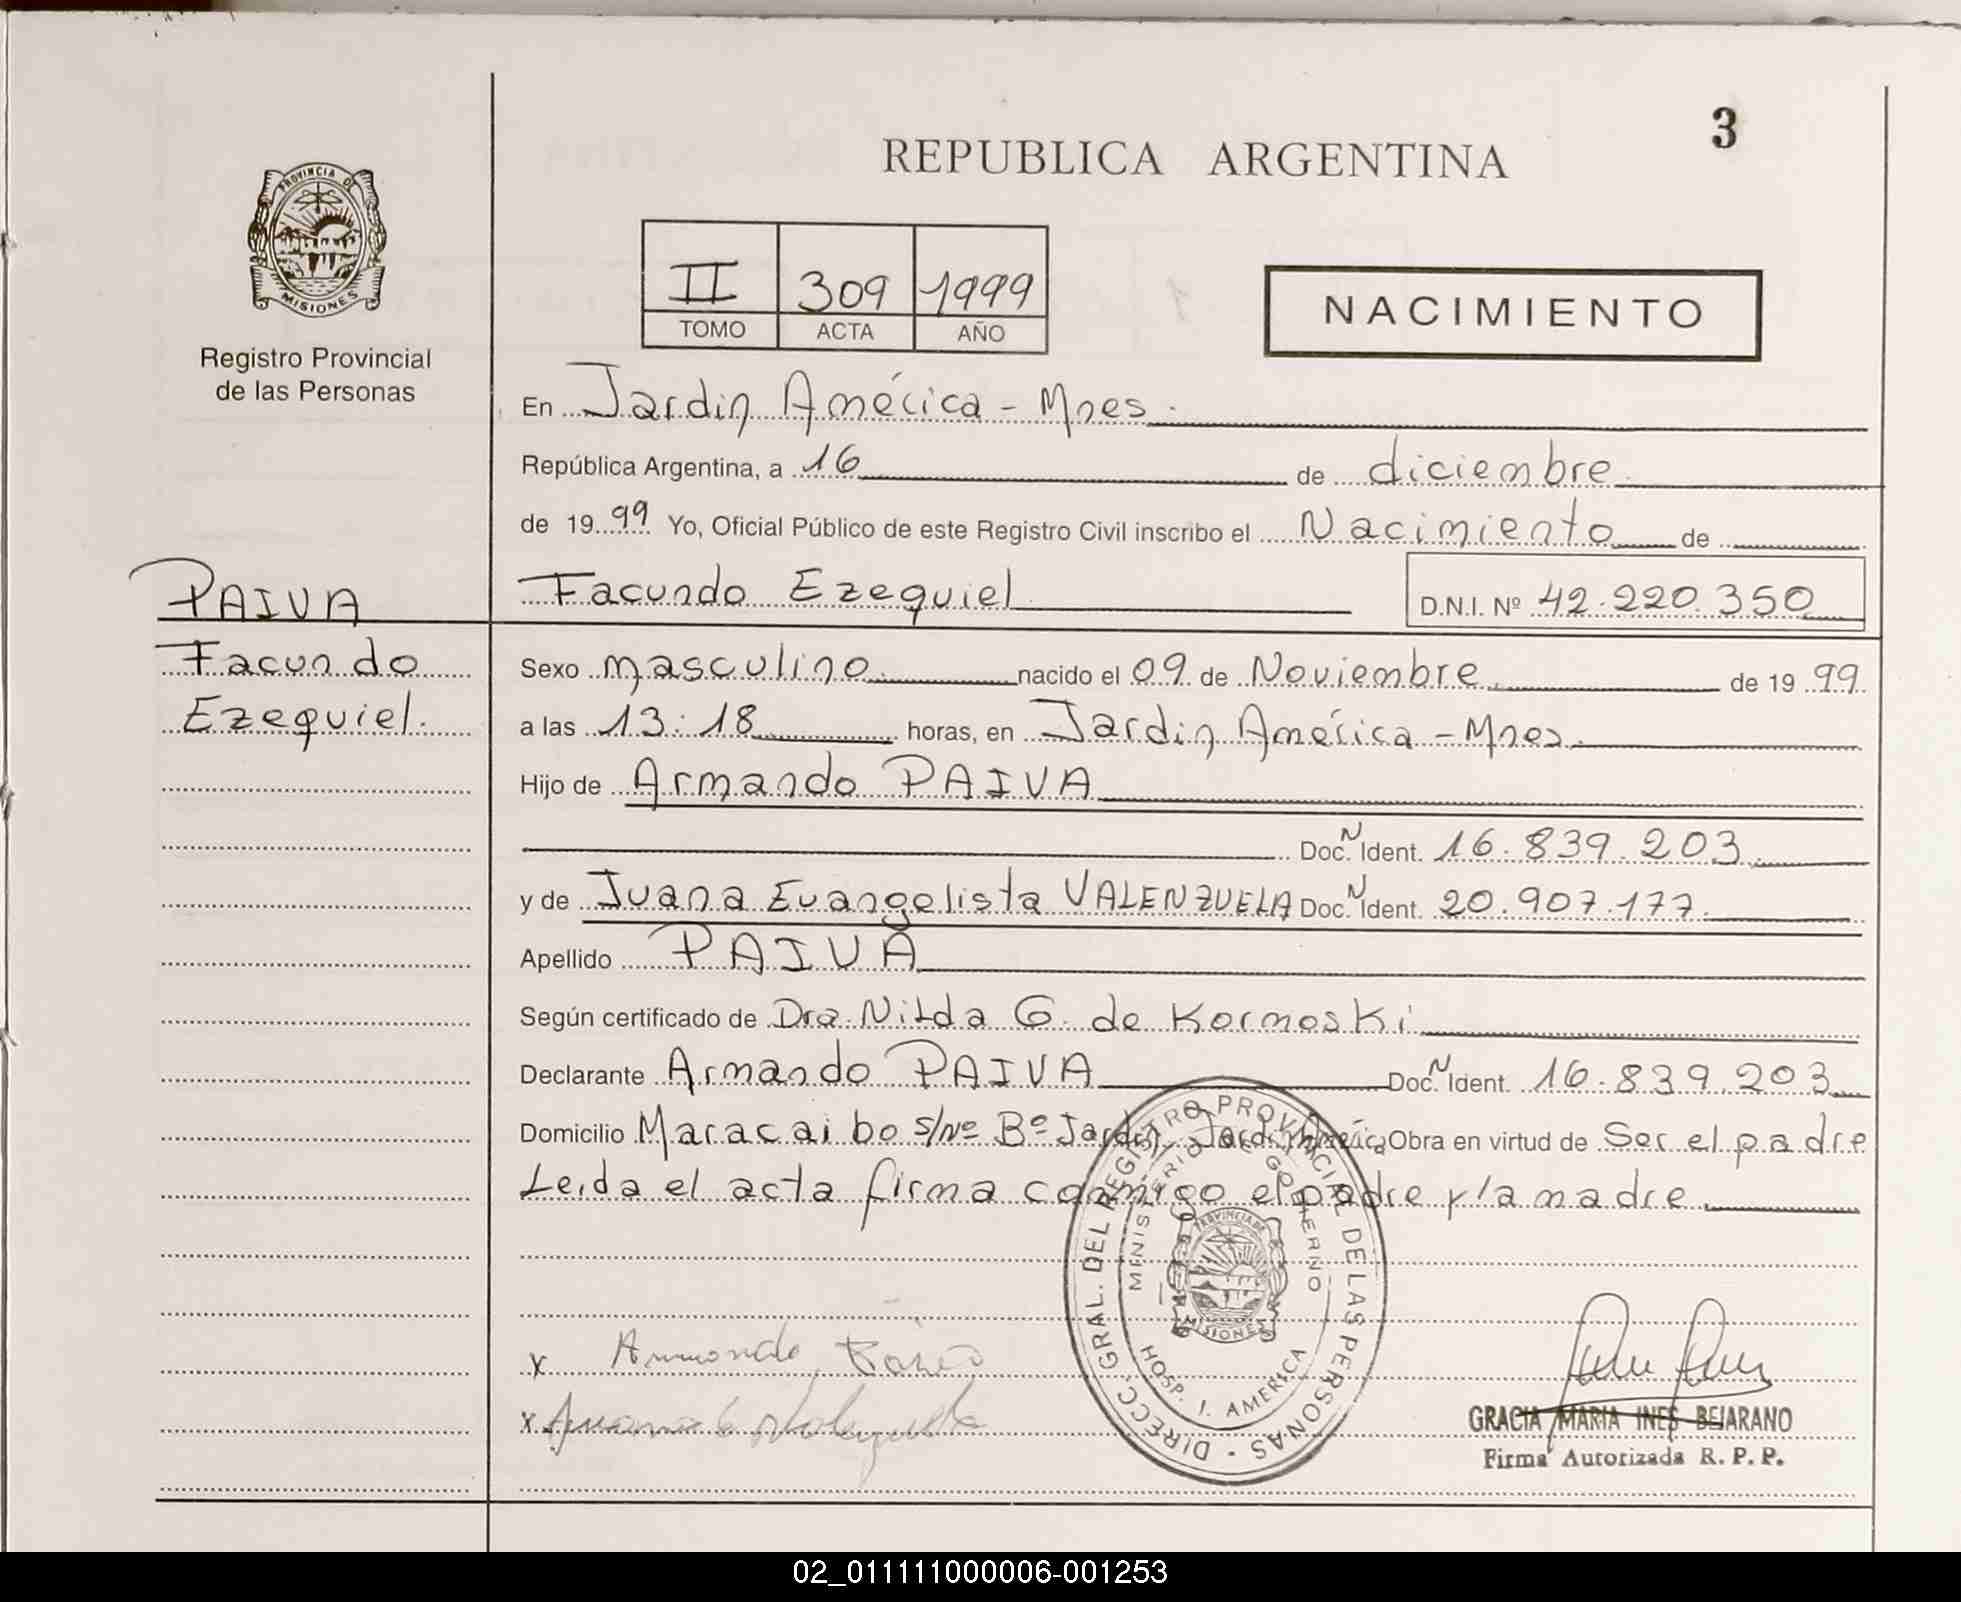 3
REPUBLICA ARGENTINA
PROVINCIA DE
MISIONES
Registro Provincial
de las Personas
II 309 1999
TOMO ACTA AÑO
NACIMIENTO
En Jardin América - Mnes.
República Argentina, a 16 de diciembre
de 1999 Yo, Oficial Público de este Registro Civil inscribo el Nacimiento de
PAIVA
Facundo Ezequiel D.N.I. Nº 42.220.350
Facundo
Ezequiel.
Sexo masculino. nacido el 09 de Noviembre de 1999
a las 13:18 horas, en Jardin América - Mnes.
Hijo de Armando PAIVA
Doc. N Ident. 16.839.203
y de Juana Evangelista VALENZUELA Doc. N Ident. 20.907.177
Apellido PAIVA
Según certificado de Dra. Nilda G. de Kormoski
Declarante Armando PAIVA Doc. N Ident. 16.839.203
Domicilio Maracaibo s/nº Bº Jardin, Jardin América Obra en virtud de Ser el padre
Leida el acta firma conmigo el padre y la madre
DIRECC. GRAL. DEL REGISTRO PROVINCIAL DE LAS PERSONAS
MINISTERIO DE GOBIERNO
PROVINCIA DE
MISIONES
HOSP. J. AMERICA
x Armando
x Juana E Valenzuela
GRACIA MARIA INES BEJARANO
Firma Autorizada R. P. P.
02_011111000006-001253